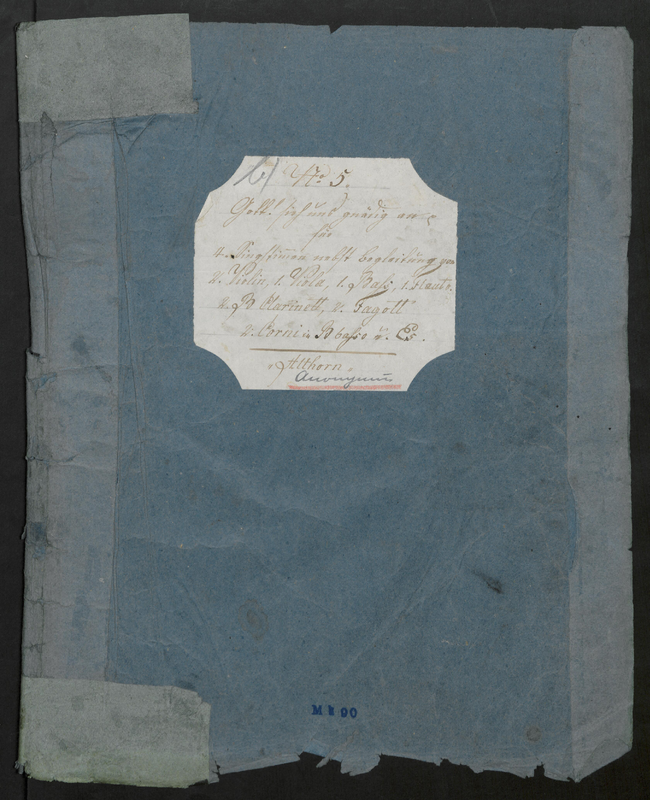 b) No 5.
Gott sieh uns gnädig an
für
4. Singstimmen nebst Begleitung von
2. Violin, 1. Viola, 1. Bass, 1. Flauto.
2. B Clarinett, 2. Fagott
2. Corni in B basso u. Es.
Althorn.
Anonymus
M 90